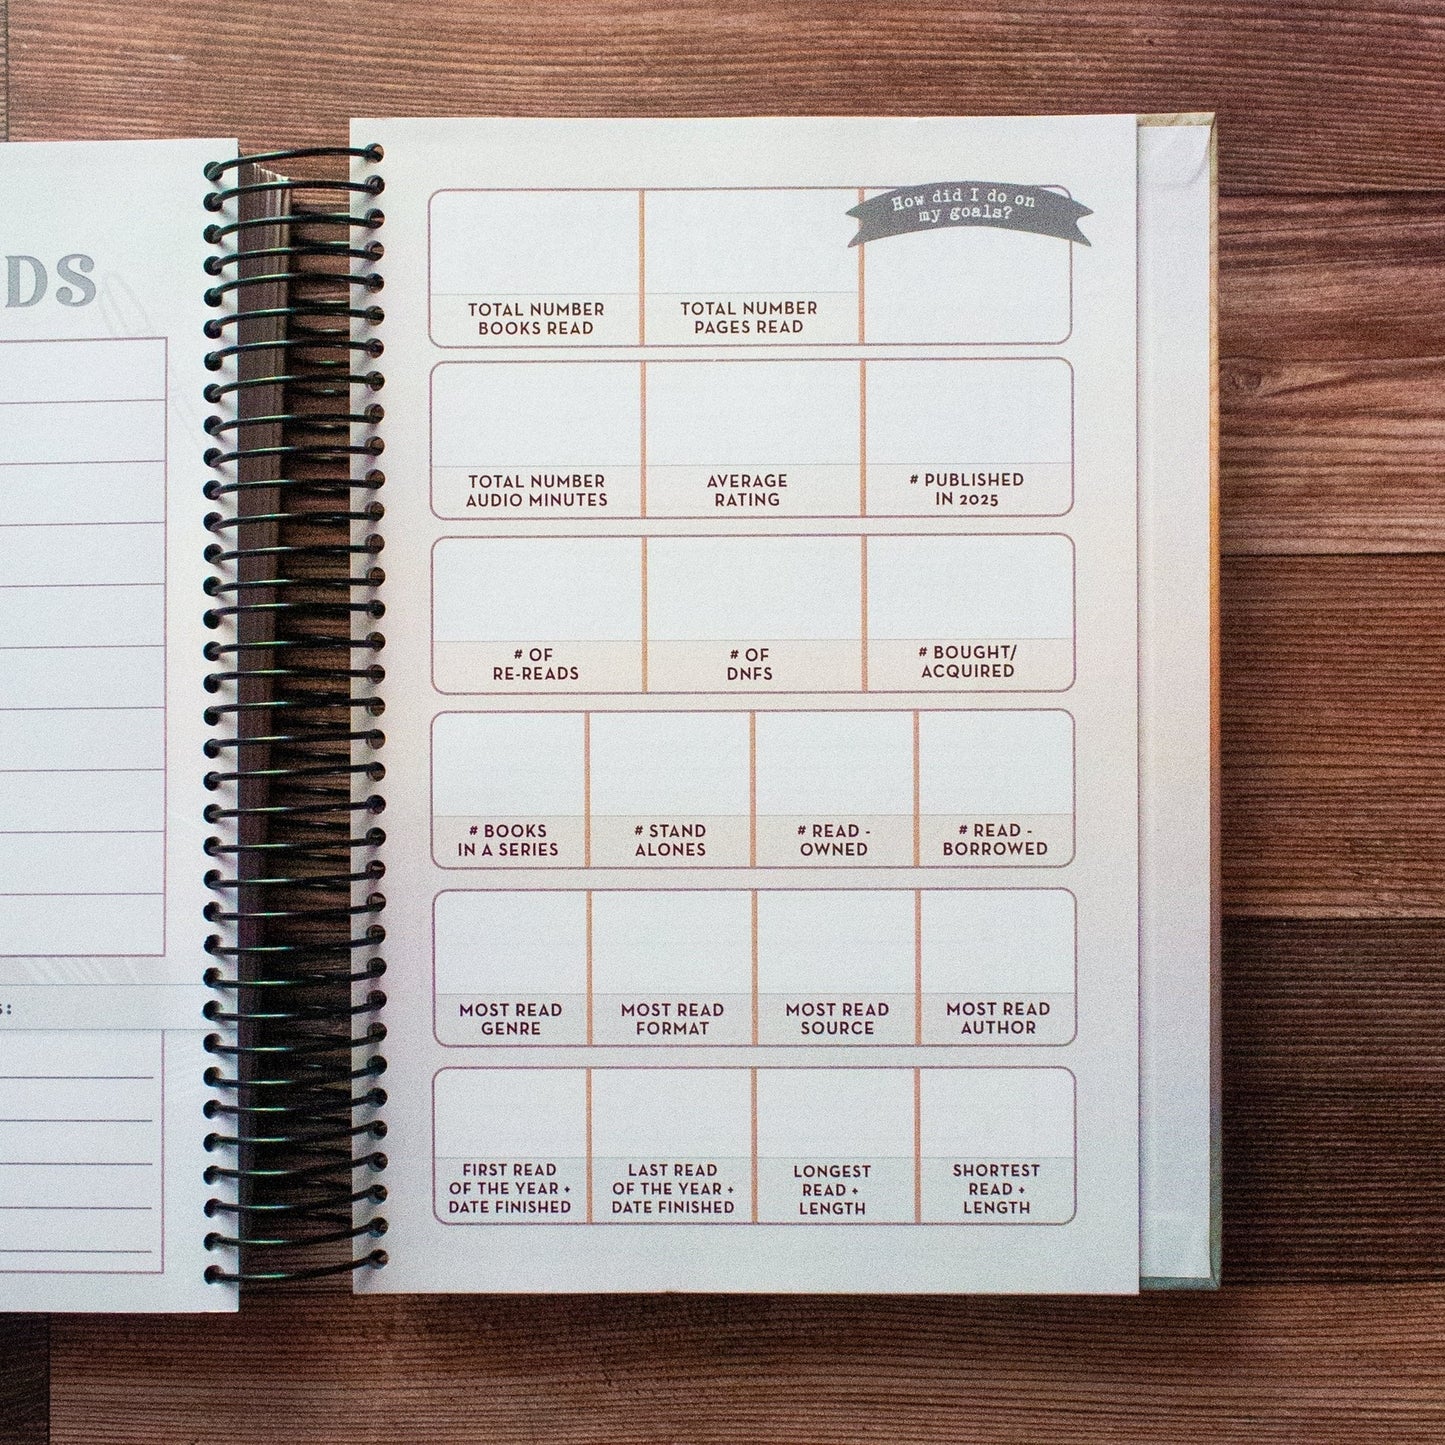 DS
S:
How did I do on
my goals?
TOTAL NUMBER
BOOKS READ
TOTAL NUMBER
PAGES READ
TOTAL NUMBER
AUDIO MINUTES
AVERAGE
RATING
# PUBLISHED
IN 2025
# OF
RE-READS
# OF
DNFS
# BOUGHT/
ACQUIRED
# BOOKS
IN A SERIES
# STAND
ALONES
# READ -
OWNED
# READ -
BORROWED
MOST READ
GENRE
MOST READ
FORMAT
MOST READ
SOURCE
MOST READ
AUTHOR
FIRST READ
OF THE YEAR +
DATE FINISHED
LAST READ
OF THE YEAR +
DATE FINISHED
LONGEST
READ +
LENGTH
SHORTEST
READ +
LENGTH